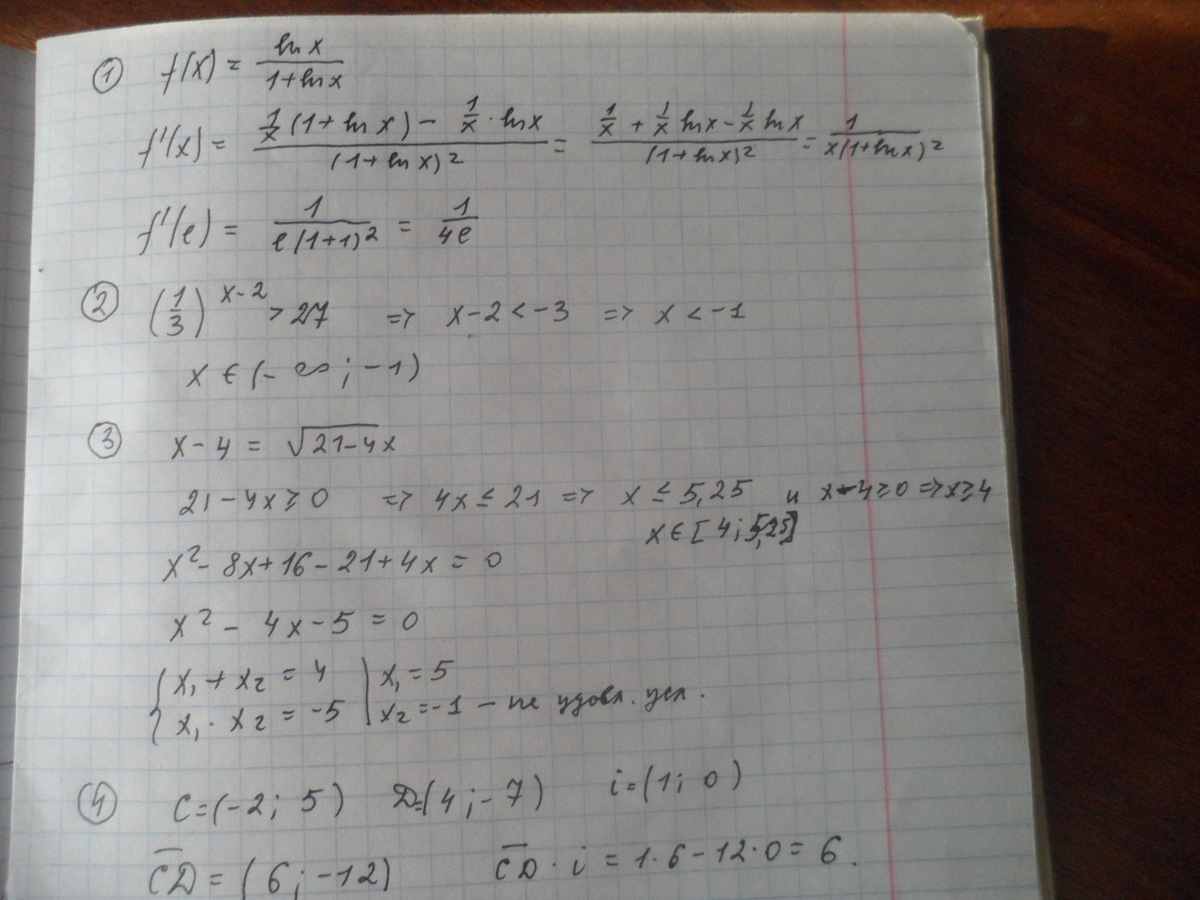 ① f(x) = ln x / 1+ln x
f'(x) = 1/x (1+ln x) − 1/x · ln x / (1+ln x)² = 1/x + 1/x ln x − 1/x ln x / (1+ln x)² = 1 / x(1+ln x)²
f'(e) = 1 / e(1+1)² = 1 / 4e
② (1/3)^(x-2) > 27 => x-2 < -3 => x < -1
x ∈ (-∞; -1)
③ x - 4 = √21-4x
21 - 4x ≥ 0 => 4x ≤ 21 => x ≤ 5,25 и x-4 ≥ 0 => x ≥ 4
x ∈ [4; 5,25]
x² - 8x + 16 - 21 + 4x = 0
x² - 4x - 5 = 0
{ x₁ + x₂ = 4 | x₁ = 5
{ x₁ · x₂ = -5 | x₂ = -1 - не удовл. усл.
④ C = (-2; 5) D = (4; -7) i = (1; 0)
CD = (6; -12) CD · i = 1·6 - 12·0 = 6.